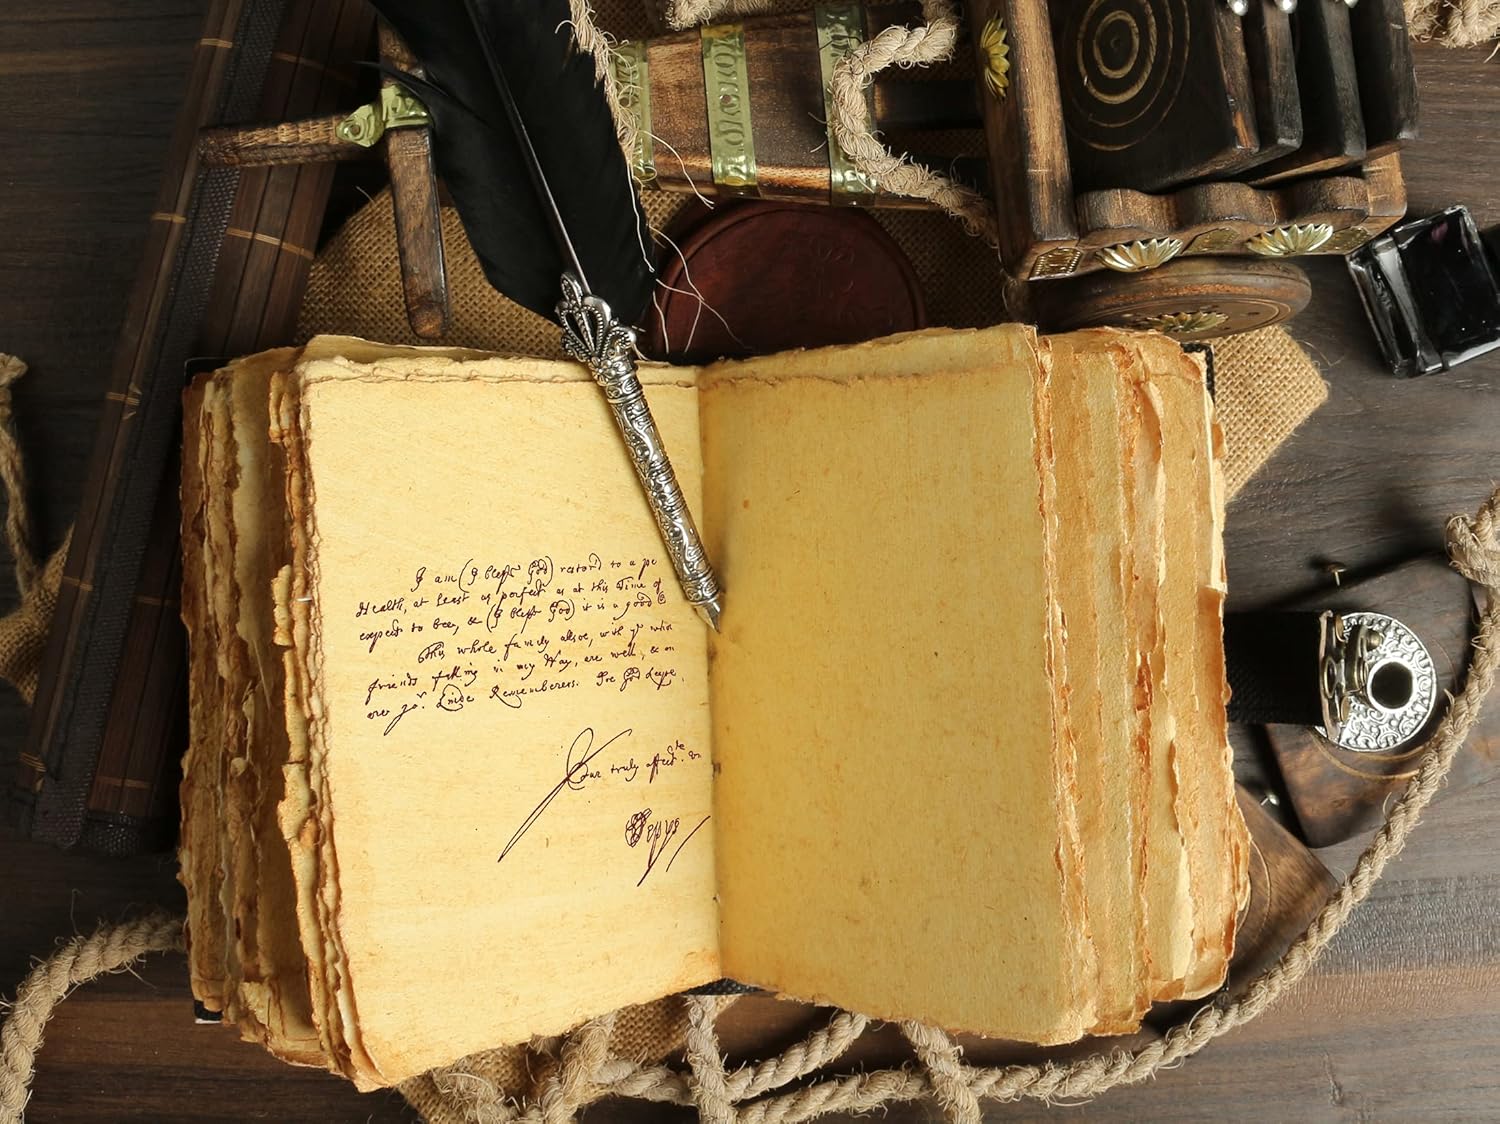 I am (I bless God) restord to a pe
Health, at least as perfect as at this Time of
expect to bee, & (I bless God) it is a good
This whole family alsoe, with yͤ
friends in my Way, are well, & on
ever yoʳ Kinde Rememberers. The God keepe
Your truly affectᵗᵉ
SPepys